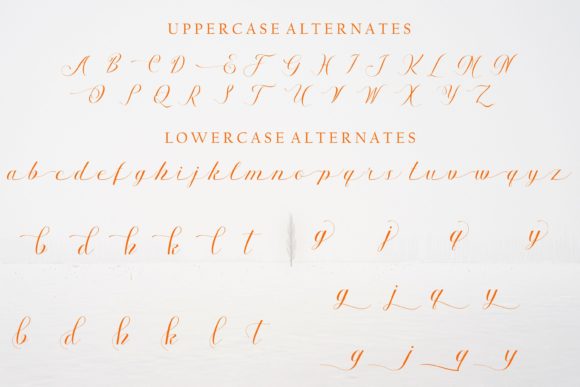 UPPERCASE ALTERNATES
A B C D E F G H I J K L M N
O P Q R S T U V W X Y Z
LOWERCASE ALTERNATES
a b c d e f g h i j k l m n o p q r s t u v w x y z
b d h k l t g j q y
g j q y
b d h k l t
g j q y